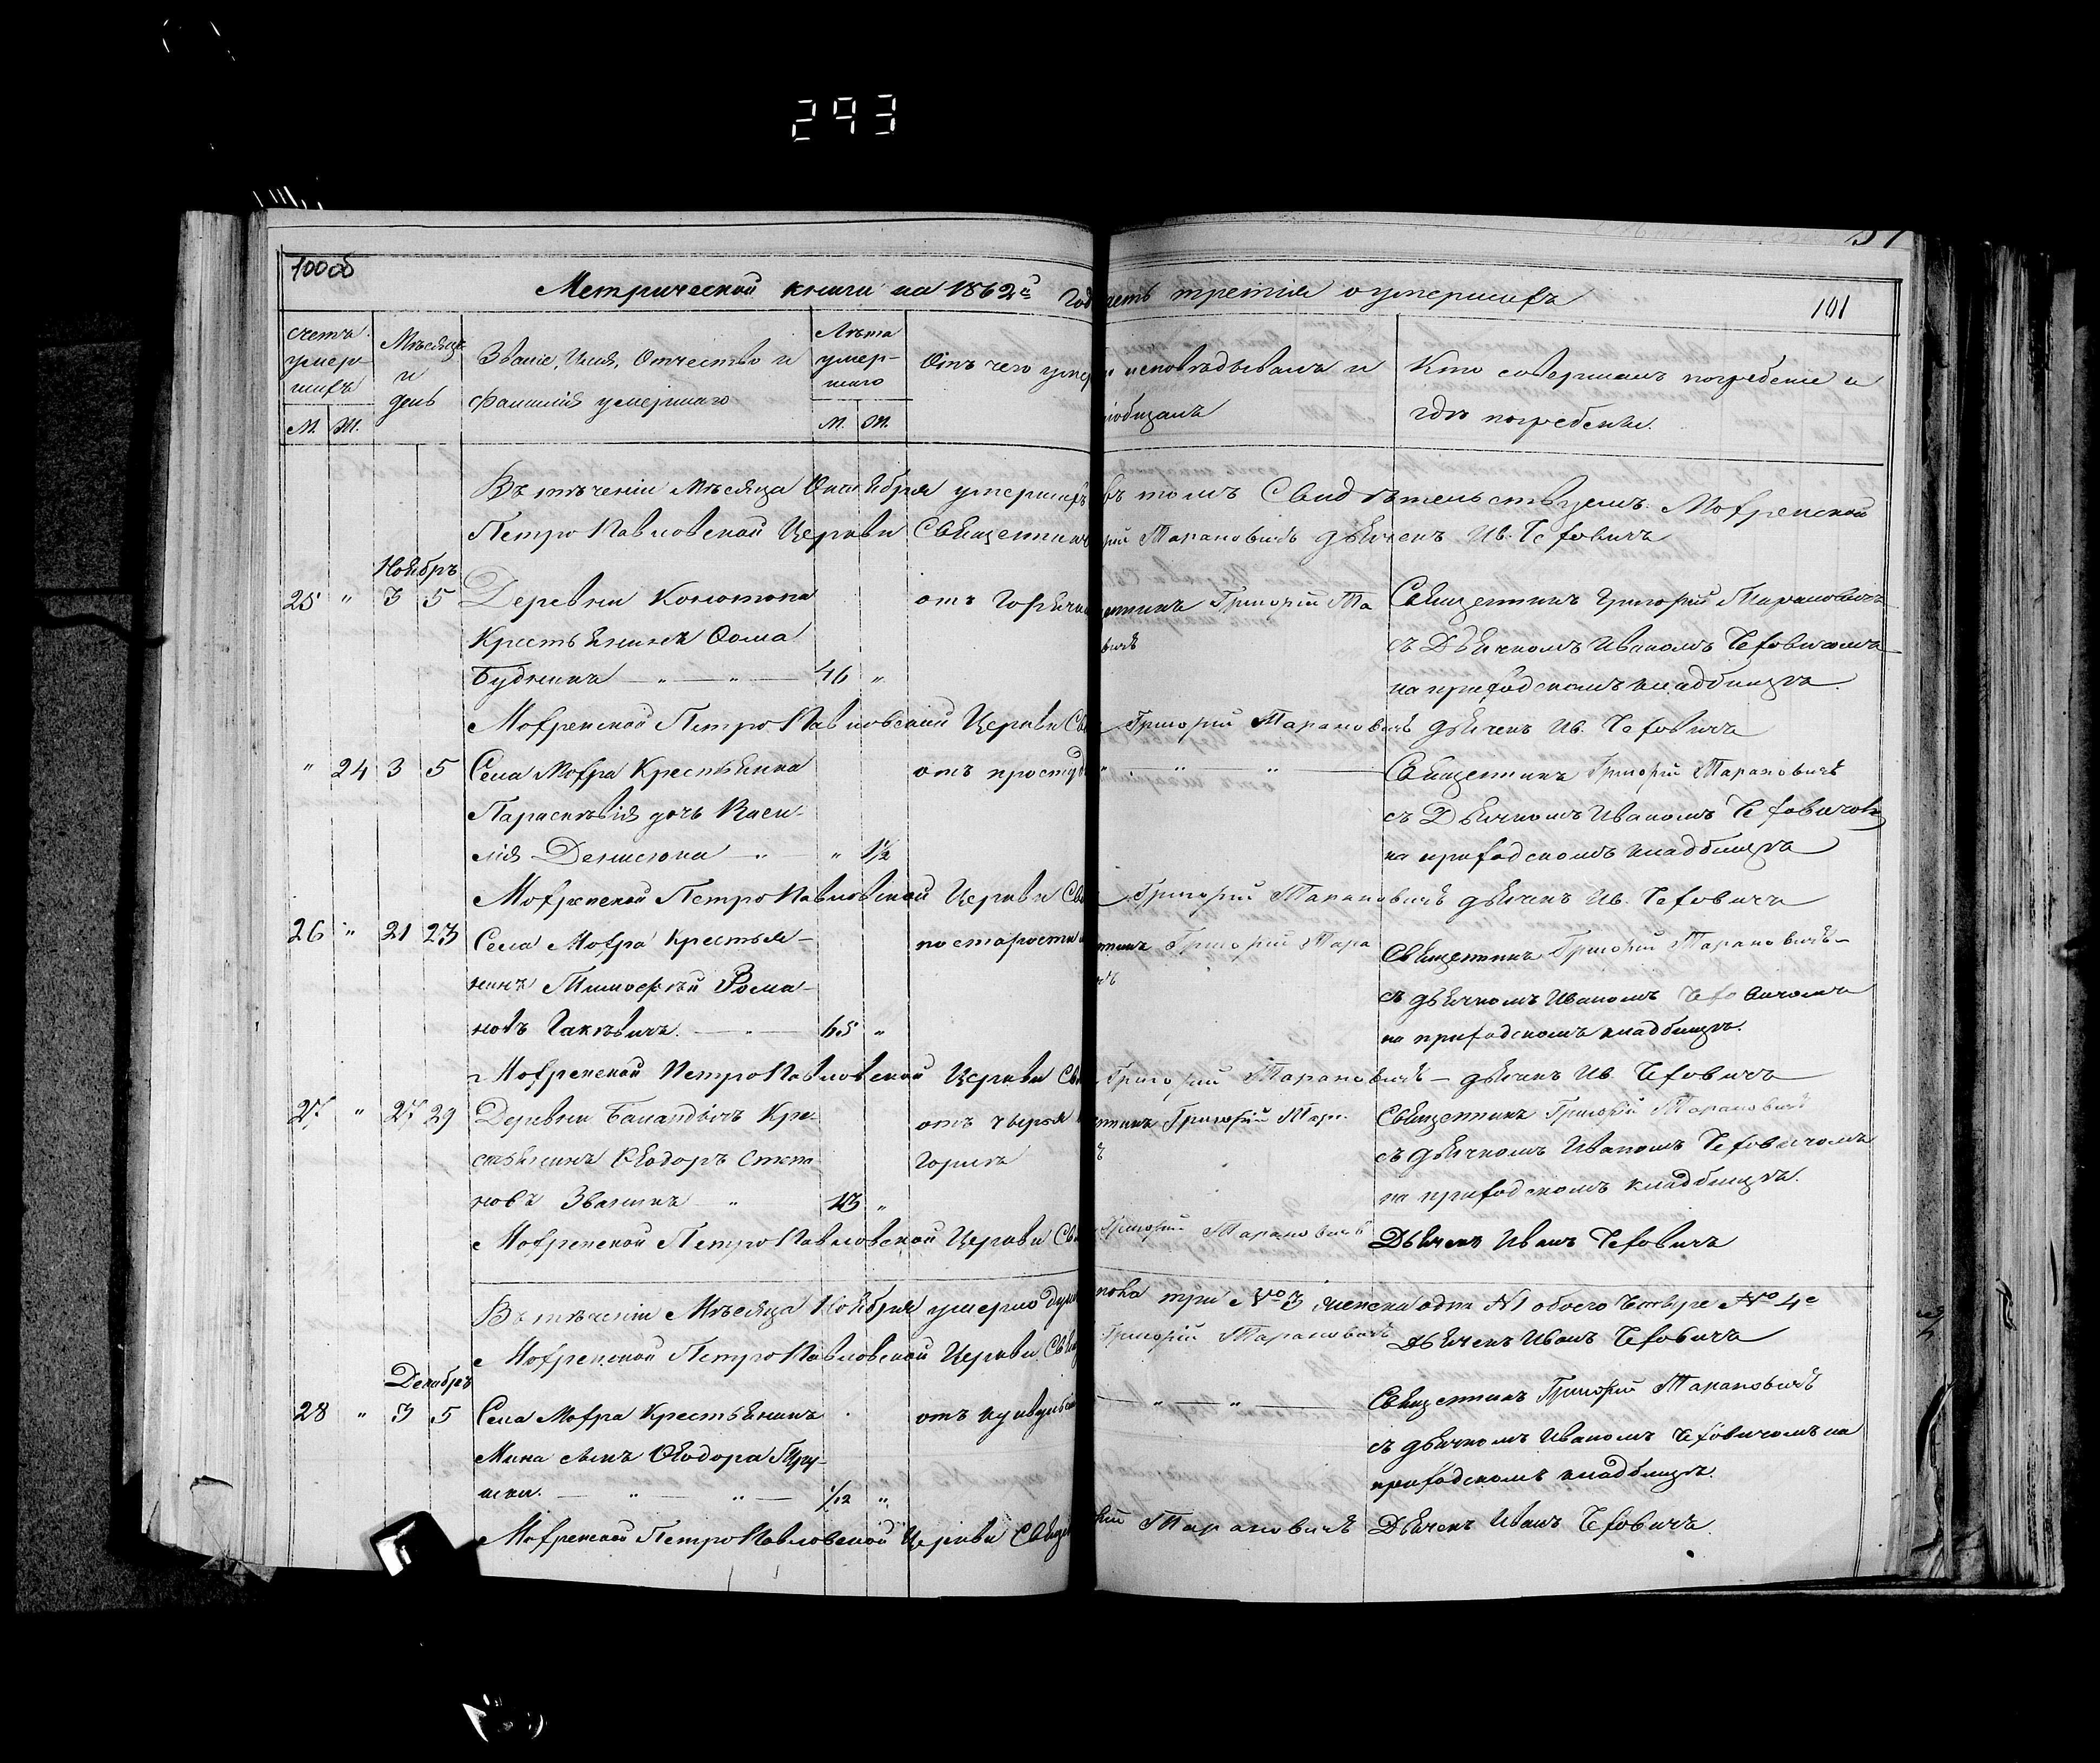 293
100об
Метрической книги на 1862й год
часть третія о умершихъ
101
счетъ умершихъ
М. Ж.
Мѣсяцъ и день
Званіе, Имя, Отчество и
фамилія умершаго
Лѣта умершаго
М. Ж.
Отъ чего умер
исповѣдывалъ и
Кто совершалъ погребеніе и
гдѣ погребены.
Въ теченіи Мѣсяца Октября умершихъ
въ томъ Свидѣтельствуемъ. Мохренской
Петро Павловской Церкви Священник
рій Тарановичъ дьячекъ Ив. Чеховичъ
Ноябрь
25 " 3 5 Деревни Конотопа
Крестьянинъ Фома
Будникъ — " — " — 46 "
отъ Горячк
Григорій Та
Священникъ Григорій Тарановичъ
съ Дьячкомъ Иваномъ Чеховичомъ
на приходскомъ кладбищѣ.
Мохренской Петро Павловской Церкви Св
Григорій Тарановичъ дьячекъ Ив. Чеховичъ
" 24 3 5 Села Мохра Крестьянка
Параскевія дочь Васи-
лія Денисюка — " " 1½
отъ простуд
" — " — " —
Священникъ Григорій Тарановичъ
съ Дьячкомъ Иваномъ Чеховичомъ
на приходскомъ кладбищѣ
Мохренской Петро Павловской Церкви Св
Григорій Тарановичъ дьячекъ Ив. Чеховичъ
26 " 21 23 Села Мохра Крестья-
нинъ Тимофѣй Рома-
новъ Гакѣвичъ. — " — 65 "
по старости
Григорій Тара
Священникъ Григорій Тарановичъ
съ дьячкомъ Иваномъ Чеховичомъ
на приходскомъ кладбищѣ.
Мохренской Петро Павловской Церкви Свя
Григорій Тарановичъ — дьячекъ Ив. Чеховичъ
27 " 27 29 Деревни Баландичъ Кре-
стьянинъ Ѳеодоръ Степа
новъ Званикъ " 43 "
отъ чирья
Горлѣ
Григорій Тара
Священникъ Григорій Тарановичъ
съ дьячкомъ Иваномъ Чеховичомъ
на приходскомъ кладбищѣ.
Мохренской Петро Павловской Церкви Свя
Григорій Тарановичъ Дьячекъ Иванъ Чеховичъ
Въ теченіи Мѣсяца Ноября умерло душ
пола три №3, женска одна №1 обоего Четыре №4е
Мохренской Петро Павловской Церкви Свящ
Григорій Тарановичъ Дьячекъ Иванъ Чеховичъ
Декабрь
28 " 3 5 Села Мохра Крестьянинъ
Мина сынъ Ѳеодора
— " — " — 1/12 "
отъ
— " — " —
Священникъ Григорій Тарановичъ
съ дьячкомъ Иваномъ Чеховичомъ на
приходскомъ кладбищѣ.
Мохренской Петро Павловской Церкви Свящ
рій Тарановичъ Дьячекъ Иванъ Чеховичъ.